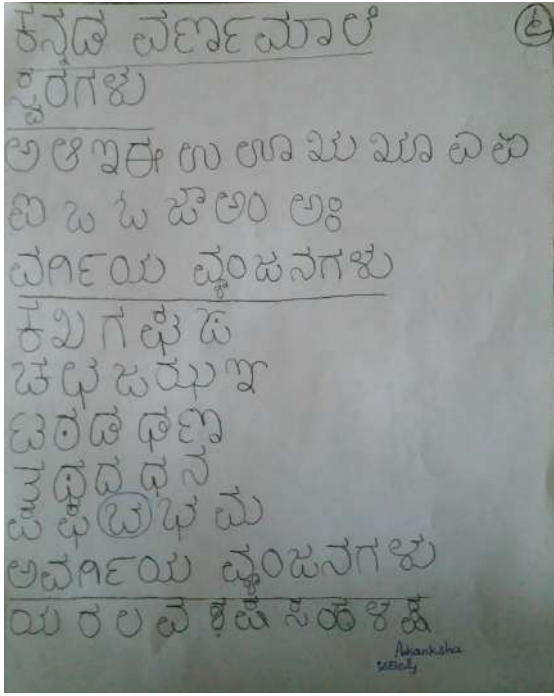 ಕನ್ನಡ ವರ್ಣಮಾಲೆ
ಸ್ವರಗಳು
ಅ ಆ ಇ ಈ ಉ ಊ ಋ ೠ ಎ ಏ
ಐ ಒ ಓ ಔ ಅಂ ಅಃ
ವರ್ಗೀಯ ವ್ಯಂಜನಗಳು
ಕ ಖ ಗ ಘ ಙ
ಚ ಛ ಜ ಝ ಞ
ಟ ಠ ಡ ಢ ಣ
ತ ಥ ದ ಧ ನ
ಪ ಫ ಬ ಭ ಮ
ಅವರ್ಗೀಯ ವ್ಯಂಜನಗಳು
ಯ ರ ಲ ವ ಶ ಷ ಸ ಹ ಳ ಕ್ಷ